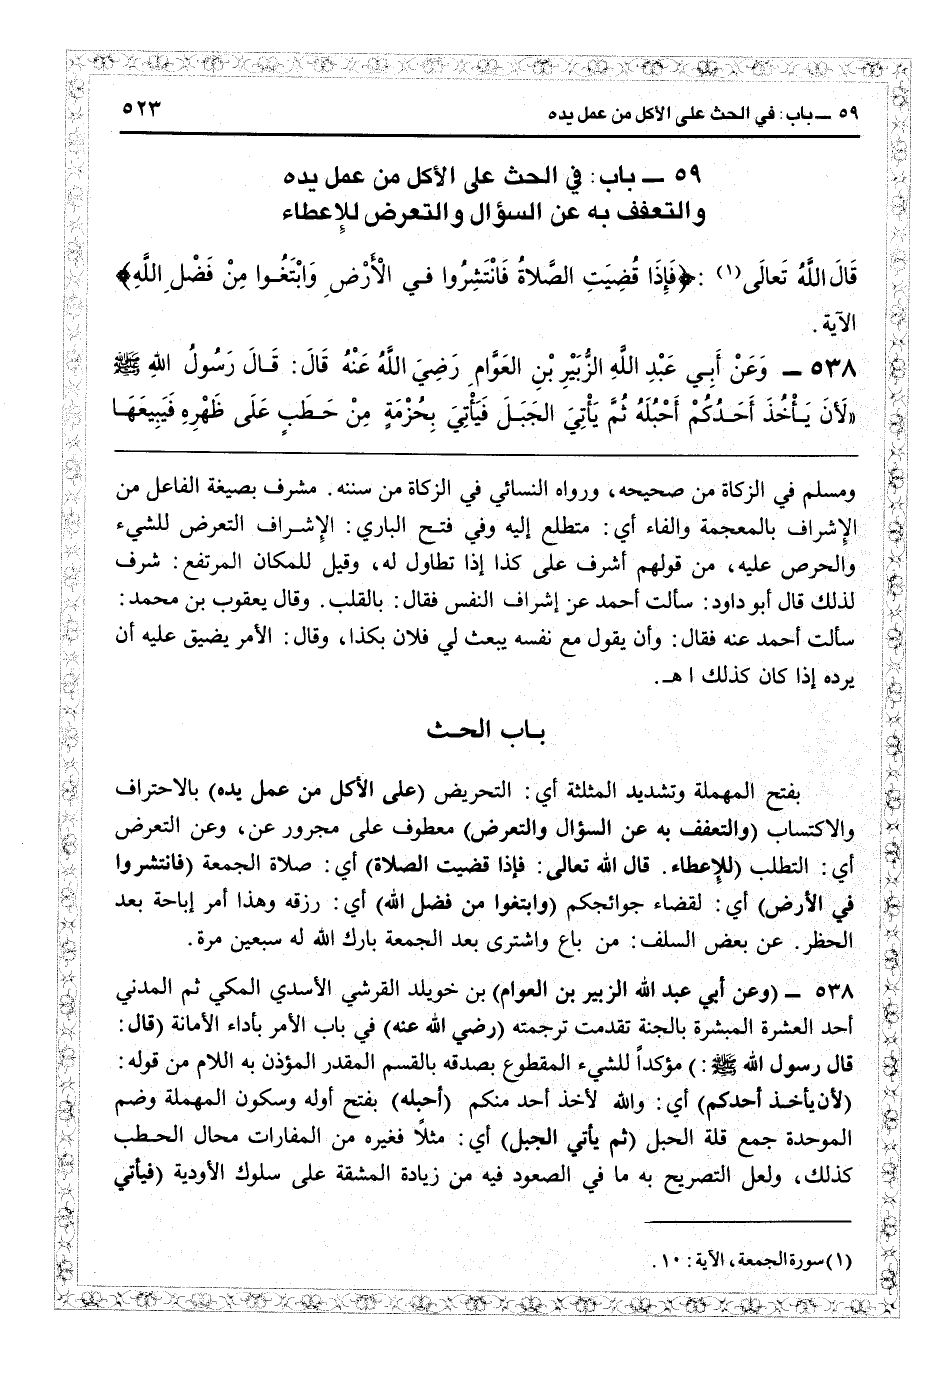 ٥٩ ــ باب: في الحث على الأكل من عمل يده ٥٢٣
٥٩ ــ باب: في الحث على الأكل من عمل يده
والتعفف به عن السؤال والتعرض للإعطاء
قَالَ اللَّهُ تَعَالَى (١) : ﴿فَإِذَا قُضِيَتِ الصَّلاةُ فَانْتَشِرُوا فِي الْأَرْضِ وَابْتَغُوا مِنْ فَضْلِ اللَّهِ﴾
الآية.
٥٣٨ ــ وَعَنْ أَبِي عَبْدِ اللَّهِ الزُّبَيْرِ بْنِ العَوَّامِ رَضِيَ اللَّهُ عَنْهُ قَالَ: قَالَ رَسُولُ اللهِ ﷺ
«لَأَن يَأْخُذَ أَحَدُكُمْ أَحْبُلَهُ ثُمَّ يَأْتِيَ الجَبَلَ فَيَأْتِيَ بِحُزْمَةٍ مِنْ حَطَبٍ عَلَى ظَهْرِهِ فَيَبِيعَهَا
ومسلم في الزكاة من صحيحه، ورواه النسائي في الزكاة من سننه. مشرف بصيغة الفاعل من
الإشراف بالمعجمة والفاء أي: متطلع إليه وفي فتح الباري: الإشراف التعرض للشيء
والحرص عليه، من قولهم أشرف على كذا إذا تطاول له، وقيل للمكان المرتفع: شرف
لذلك قال أبو داود: سألت أحمد عن إشراف النفس فقال: بالقلب. وقال يعقوب بن محمد:
سألت أحمد عنه فقال: وأن يقول مع نفسه يبعث لي فلان بكذا، وقال: الأمر يضيق عليه أن
يرده إذا كان كذلك ا هـ.
باب الحث
بفتح المهملة وتشديد المثلثة أي: التحريض (على الأكل من عمل يده) بالاحتراف
والاكتساب (والتعفف به عن السؤال والتعرض) معطوف على مجرور عن، وعن التعرض
أي: التطلب (للإعطاء. قال الله تعالى: فإذا قضيت الصلاة) أي: صلاة الجمعة (فانتشروا
في الأرض) أي: لقضاء جوائجكم (وابتغوا من فضل الله) أي: رزقه وهذا أمر إباحة بعد
الحظر. عن بعض السلف: من باع واشترى بعد الجمعة بارك الله له سبعين مرة.
٥٣٨ ــ (وعن أبي عبد الله الزبير بن العوام) بن خويلد القرشي الأسدي المكي ثم المدني
أحد العشرة المبشرة بالجنة تقدمت ترجمته (رضي الله عنه) في باب الأمر بأداء الأمانة (قال:
قال رسول الله ﷺ:) مؤكداً للشيء المقطوع بصدقه بالقسم المقدر المؤذن به اللام من قوله:
(لأن يأخذ أحدكم) أي: والله لأخذ أحد منكم (أحبله) بفتح أوله وسكون المهملة وضم
الموحدة جمع قلة الحبل (ثم يأتي الجبل) أي: مثلاً فغيره من المفارات محال الحطب
كذلك، ولعل التصريح به ما في الصعود فيه من زيادة المشقة على سلوك الأودية (فيأتي
(١) سورة الجمعة، الآية: ١٠.